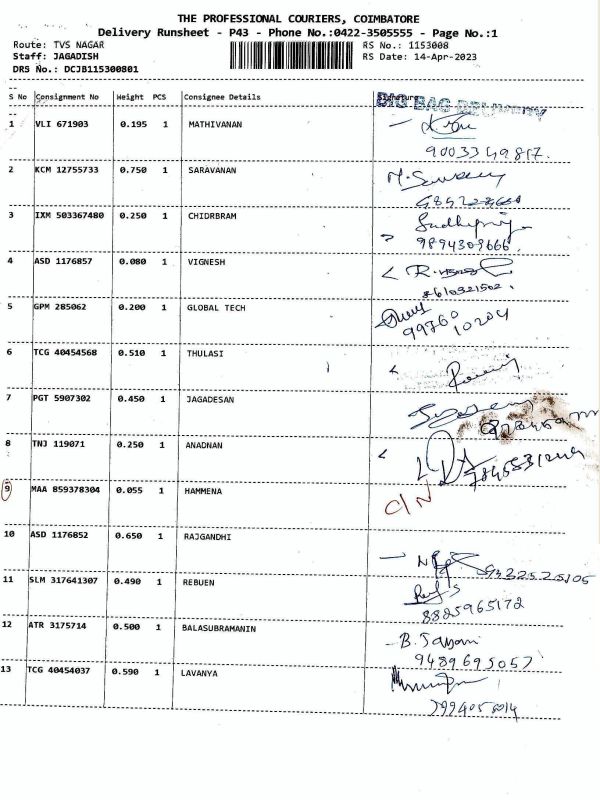 THE PROFESSIONAL COURIERS, COIMBATORE
Delivery Runsheet - P43 - Phone No.:0422-3505555 - Page No.:1
Route: TVS NAGAR RS No.: 1153008
Staff: JAGADISH RS Date: 14-Apr-2023
DRS No.: DCJB115300801
S No Consignment No Weight PCS Consignee Details Signature
BIG BAG DELIVERY
1 VLI 671903 0.195 1 MATHIVANAN
9003349817.
2 KCM 12755733 0.750 1 SARAVANAN
3 IXM 503367480 0.250 1 CHIDRBRAM
9894308666.
4 ASD 1176857 0.080 1 VIGNESH
8610921502.
5 GPM 285062 0.200 1 GLOBAL TECH
99760 10204
6 TCG 40454568 0.510 1 THULASI
7 PGT 5907302 0.450 1 JAGADESAN
8 TNJ 119071 0.250 1 ANADNAN
9 MAA 859378304 0.055 1 HAMMENA C/N
10 ASD 1176852 0.650 1 RAJGANDHI
11 SLM 317641307 0.490 1 REBUEN
8825965172
12 ATR 3175714 0.500 1 BALASUBRAMANIN
9489695057
13 TCG 40454037 0.590 1 LAVANYA